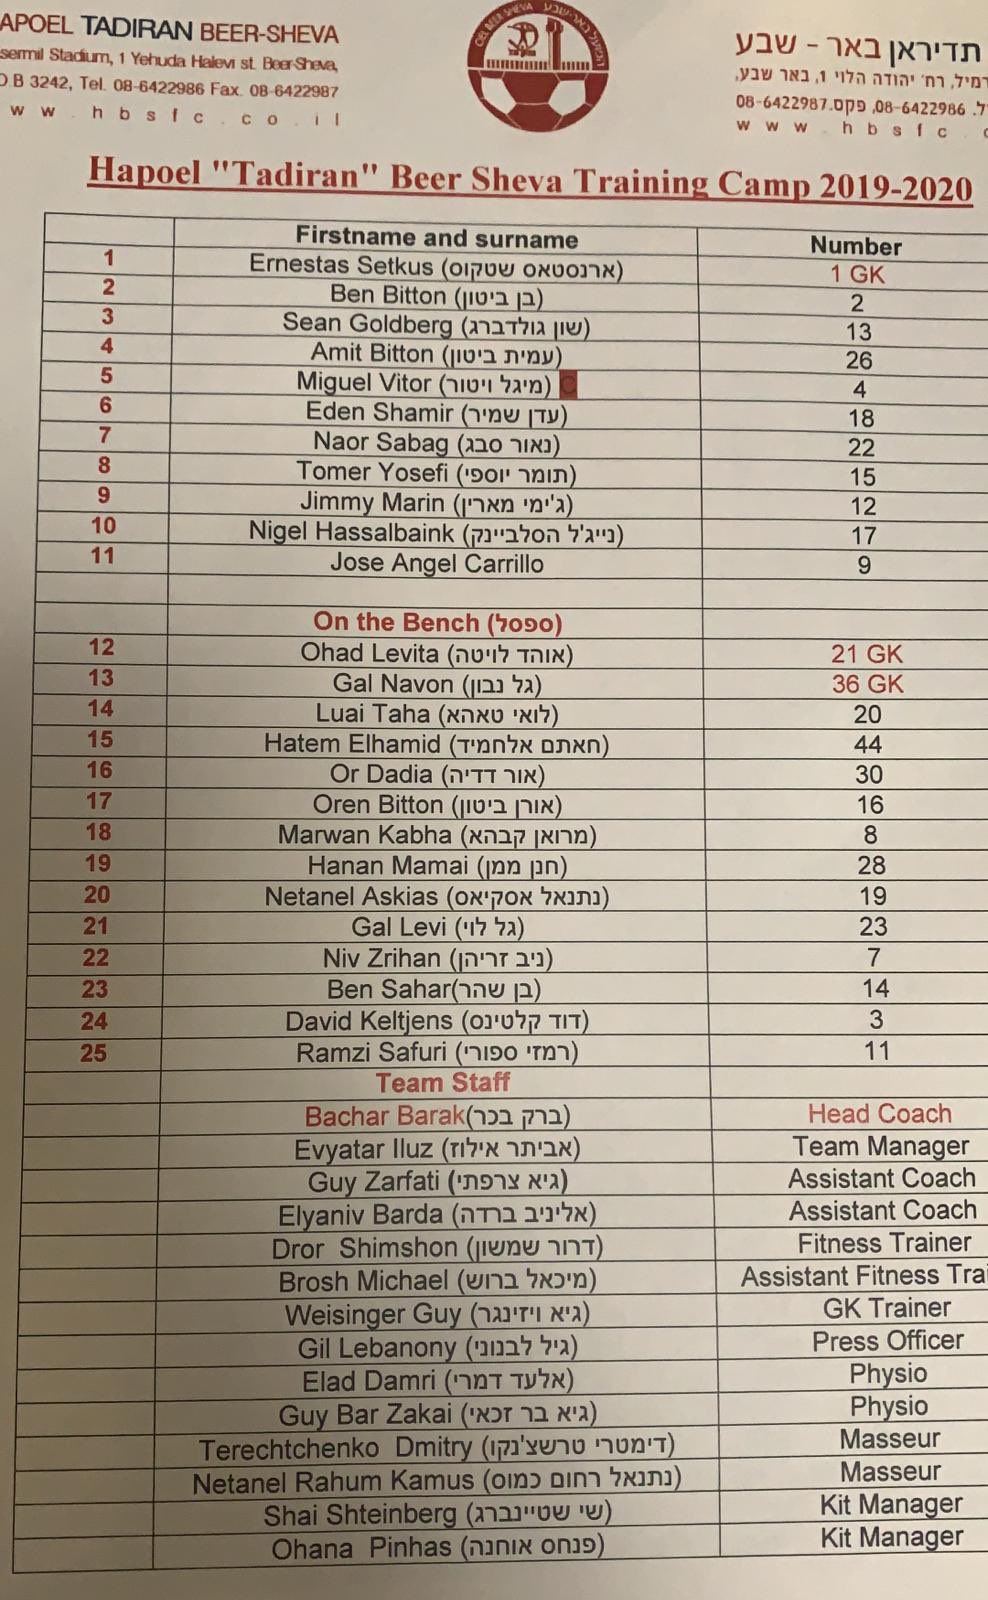 APOEL TADIRAN BEER-SHEVA
sermil Stadium, 1 Yehuda Halevi st. Beer-Sheva,
O.B 3242, Tel. 08-6422986 Fax. 08-6422987
w w . h b s f c . c o . i l
BEER SHEVA
תדיראן באר - שבע
רמיל, רח' יהודה הלוי 1, באר שבע,
ל. 08-6422986, פקס.08-6422987
w w w . h b s f c . c
Hapoel "Tadiran" Beer Sheva Training Camp 2019-2020
Firstname and surname Number
1 Ernestas Setkus (ארנסטאס שטקוס) 1 GK
2 Ben Bitton (בן ביטון) 2
3 Sean Goldberg (שון גולדברג) 13
4 Amit Bitton (עמית ביטון) 26
5 Miguel Vitor (מיגל ויטור) C 4
6 Eden Shamir (עדן שמיר) 18
7 Naor Sabag (נאור סבג) 22
8 Tomer Yosefi (תומר יוספי) 15
9 Jimmy Marin (ג'ימי מארין) 12
10 Nigel Hassalbaink (נייג'ל הסלביינק) 17
11 Jose Angel Carrillo 9
On the Bench (ספסל)
12 Ohad Levita (אוהד לויטה) 21 GK
13 Gal Navon (גל נבון) 36 GK
14 Luai Taha (לואי טאהא) 20
15 Hatem Elhamid (חאתם אלחמיד) 44
16 Or Dadia (אור דדיה) 30
17 Oren Bitton (אורן ביטון) 16
18 Marwan Kabha (מרואן קבהא) 8
19 Hanan Mamai (חנן ממן) 28
20 Netanel Askias (נתנאל אסקיאס) 19
21 Gal Levi (גל לוי) 23
22 Niv Zrihan (ניב זריהן) 7
23 Ben Sahar(בן שהר) 14
24 David Keltjens (דוד קלטינס) 3
25 Ramzi Safuri (רמזי ספורי) 11
Team Staff
Bachar Barak(ברק בכר) Head Coach
Evyatar Iluz (אביתר אילוז) Team Manager
Guy Zarfati (גיא צרפתי) Assistant Coach
Elyaniv Barda (אליניב ברדה) Assistant Coach
Dror Shimshon (דרור שמשון) Fitness Trainer
Brosh Michael (מיכאל ברוש) Assistant Fitness Trai
Weisinger Guy (גיא ויזינגר) GK Trainer
Gil Lebanony (גיל לבנוני) Press Officer
Elad Damri (אלעד דמרי) Physio
Guy Bar Zakai (גיא בר זכאי) Physio
Terechtchenko Dmitry (דימטרי טרשצ'נקו) Masseur
Netanel Rahum Kamus (נתנאל רחום כמוס) Masseur
Shai Shteinberg (שי שטיינברג) Kit Manager
Ohana Pinhas (פנחס אוחנה) Kit Manager